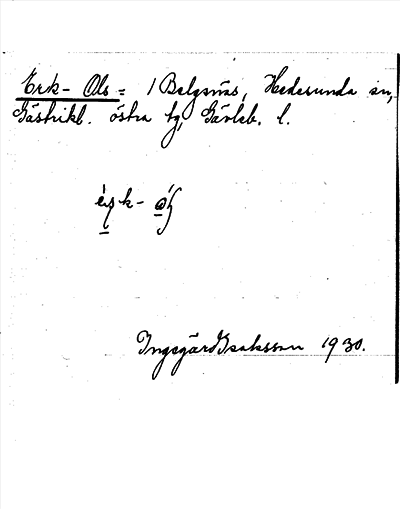 Erk- Ols = / Balgsnäs, Hedesunda sn,
Gästrikl. östra tg, Gävleb. l.
Ingegärd Isaksson 1930.